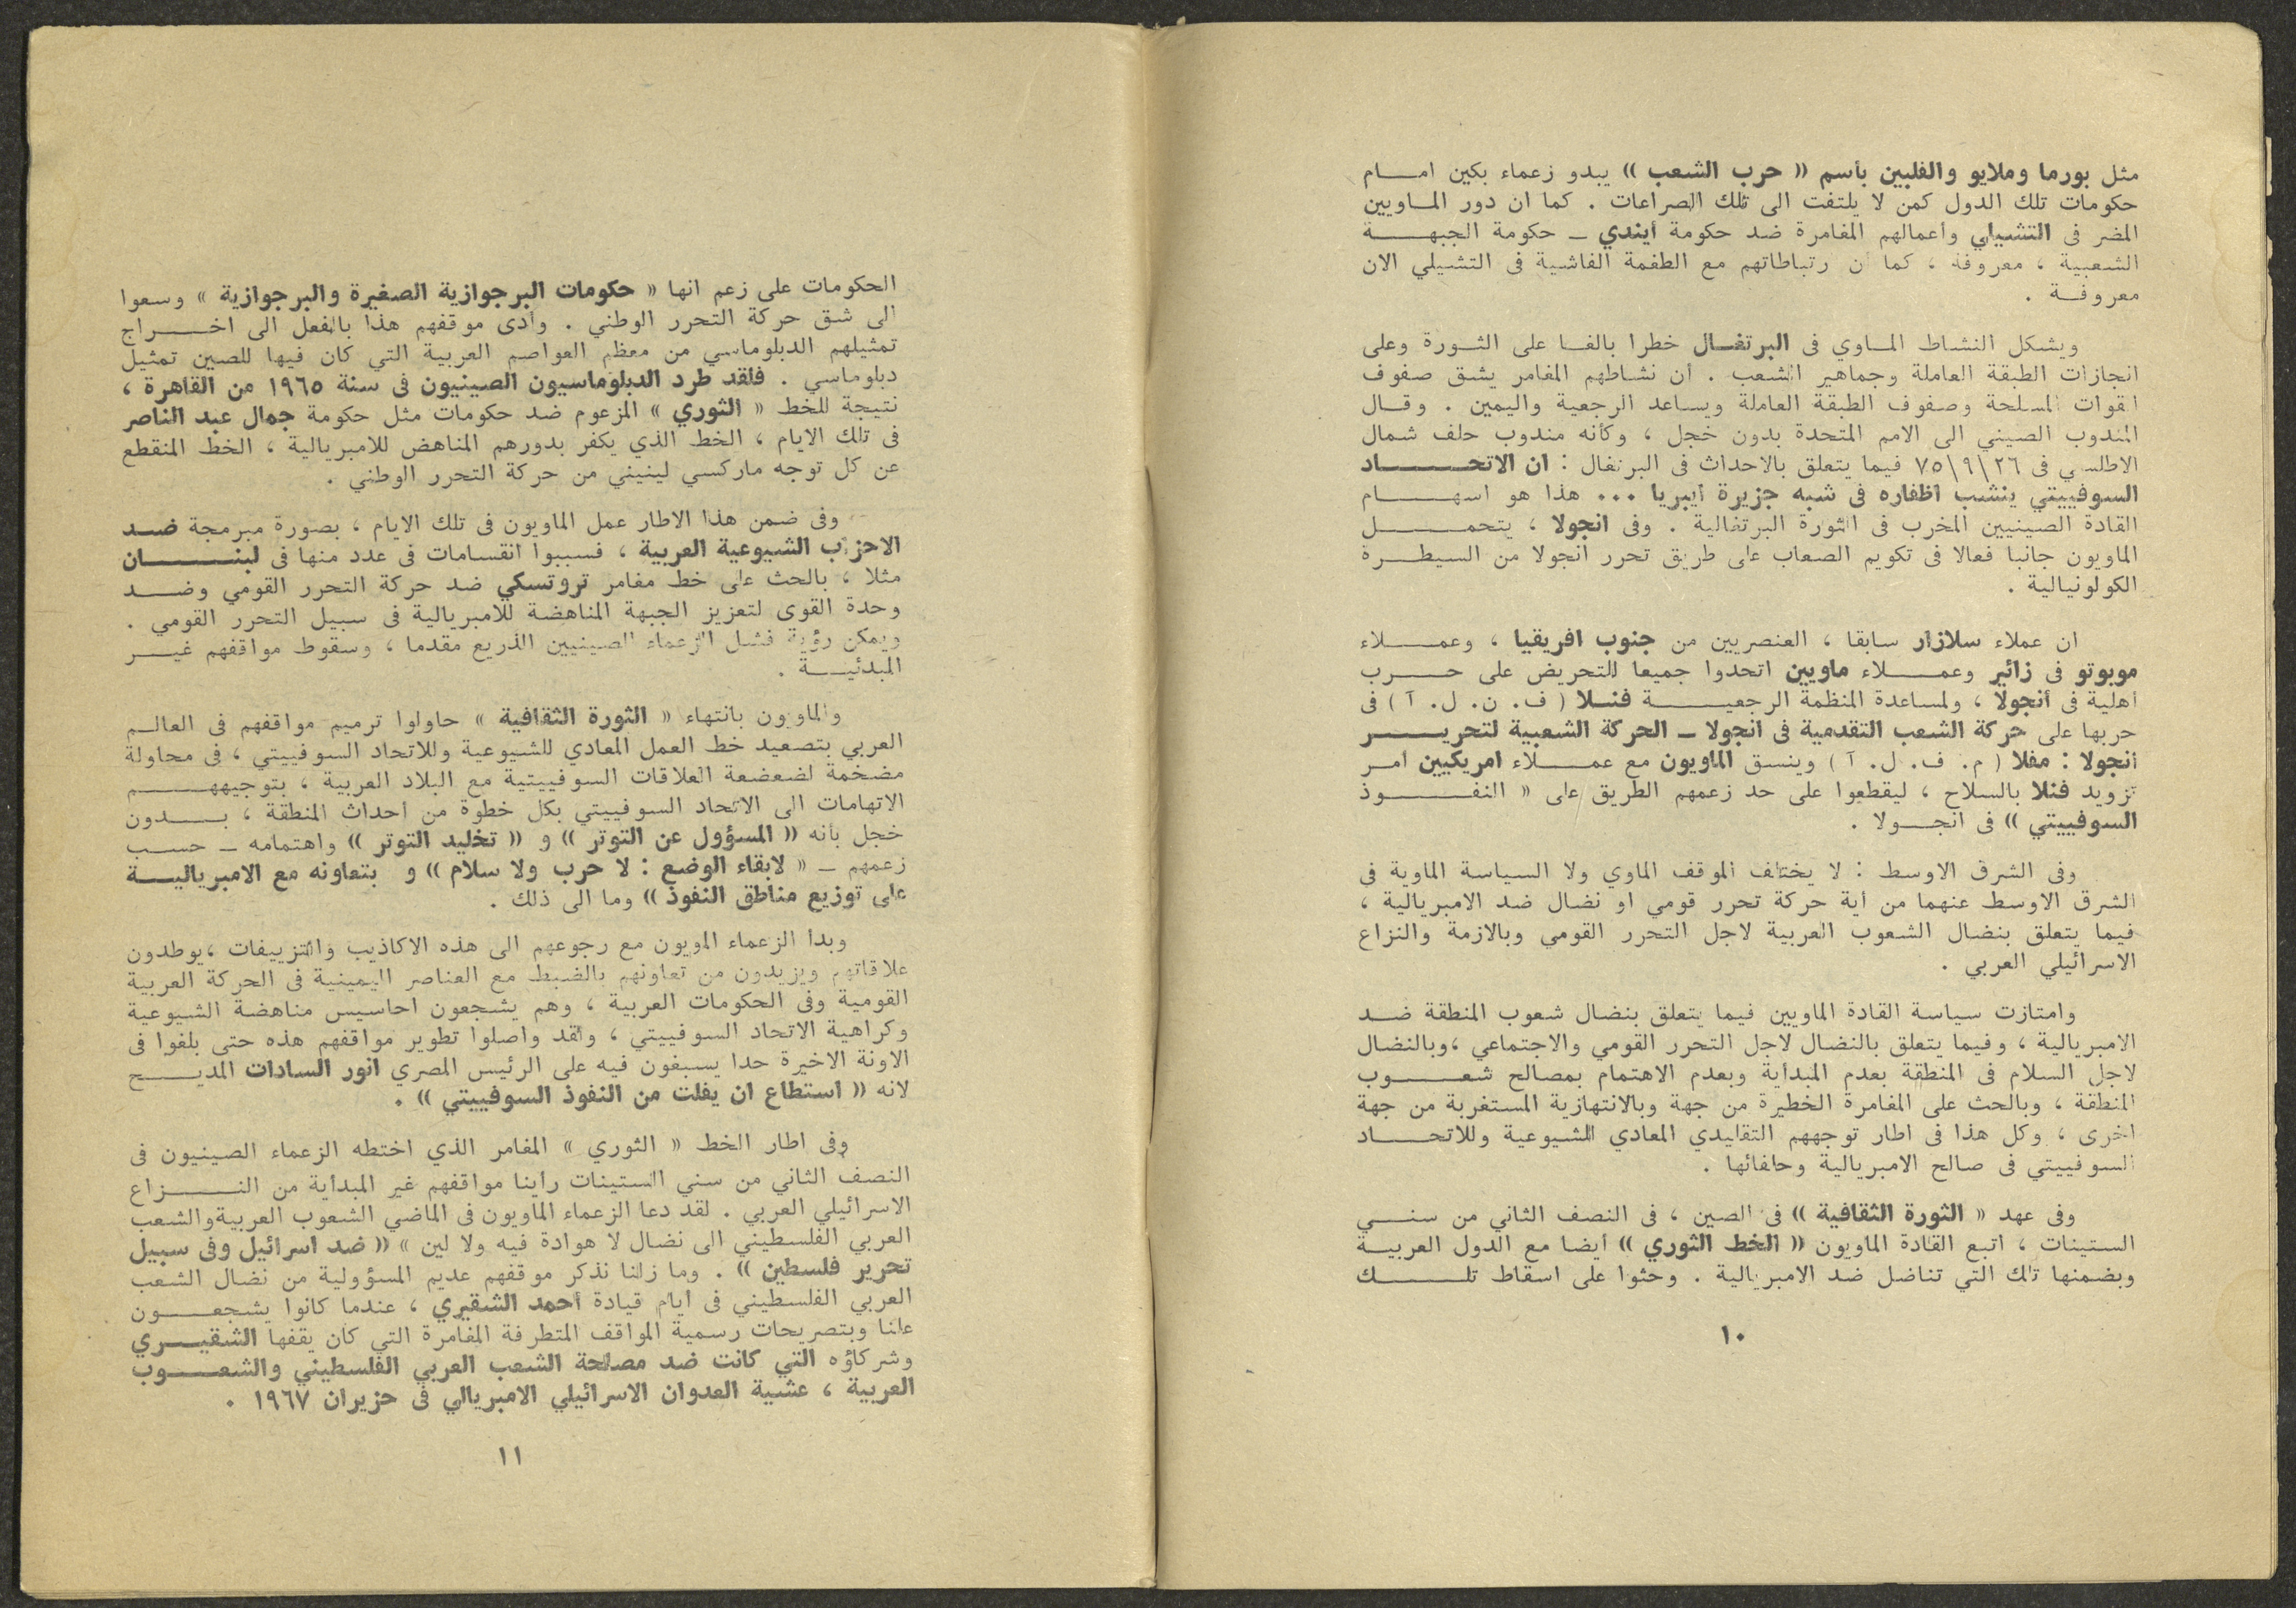 مثل بورما وملايو والفلبين بأسم « حرب الشعب » يبدو زعماء بكين امام
حكومات تلك الدول كمن لا يلتفت الى تلك الصراعات . كما ان دور الماويين
المضر فى التشيلي وأعمالهم المغامرة ضد حكومة أيندي ـ حكومة الجبهة
الشعبية ، معروفة ، كما ان رتباطاتهم مع الطغمة الفاشية فى التشيلي الان
معروفة .
ويشكل النشاط الماوي فى البرتغال خطرا بالغا على الثورة وعلى
انجازات الطبقة العاملة وجماهير الشعب . ان نشاطهم المغامر يشق صفوف
القوات المسلحة وصفوف الطبقة العاملة ويساعد الرجعية واليمين . وقال
المندوب الصيني الى الامم المتحدة بدون خجل ، وكأنه مندوب حلف شمال
الاطلسي فى ٢٦\٩\٧٥ فيما يتعلق بالاحداث فى البرتغال : ان الاتحاد
السوفييتي ينشب اظفاره فى شبه جزيرة أيبريا ... هذا هو اسهام
القادة الصينيين المخرب فى الثورة البرتغالية . وفى انجولا ، يتحمل
الماويون جانبا فعالا فى تكويم الصعاب على طريق تحرر انجولا من السيطرة
الكولونيالية .
ان عملاء سلازار سابقا ، العنصريين من جنوب افريقيا ، وعملاء
موبوتو فى زائير وعملاء ماويين اتحدوا جميعا للتحريض على حرب
أهلية فى أنجولا ، ولمساعدة المنظمة الرجعية فنلا ( ف. ن. ل. آ ) فى
حربها على حركة الشعب التقدمية فى انجولا ـ الحركة الشعبية لتحرير
أنجولا : مفلا ( م. ف. ل. آ ) وينسق الماويون مع عملاء امريكيين أمر
تزويد فنلا بالسلاح ، ليقطعوا على حد زعمهم الطريق على « النفوذ
السوفييتي » فى انجولا .
وفى الشرق الاوسط : لا يختلف الموقف الماوي ولا السياسة الماوية فى
الشرق الاوسط عنهما من أية حركة تحرر قومي او نضال ضد الامبريالية ،
فيما يتعلق بنضال الشعوب العربية لاجل التحرر القومي وبالازمة والنزاع
الاسرائيلي العربي .
وامتازت سياسة القادة الماويين فيما يتعلق بنضال شعوب المنطقة ضد
الامبريالية ، وفيما يتعلق بالنضال لاجل التحرر القومي والاجتماعي ،وبالنضال
لاجل السلام فى المنطقة بعدم المبدأية وبعدم الاهتمام بمصالح شعوب
المنطقة ، وبالحث على المغامرة الخطيرة من جهة وبالانتهازية المستغربة من جهة
اخرى ، وكل هذا فى اطار توجههم التقليدي المعادي للشيوعية وللاتحاد
السوفييتي فى صالح الامبريالية وحلفائها .
وفى عهد « الثورة الثقافية » فى الصين ، فى النصف الثاني من سني
الستينات ، اتبع القادة الماويون « الخط الثوري » أيضا مع الدول العربية
وبضمنها تلك التي تناضل ضد الامبريالية . وحثوا على اسقاط تلك
١٠
الحكومات على زعم انها « حكومات البرجوازية الصغيرة والبرجوازية » وسعوا
الى شق حركة التحرر الوطني . وأدى موقفهم هذا بالفعل الى اخراج
تمثيلهم الدبلوماسي من معظم العواصم العربية التي كان فيها للصين تمثيل
دبلوماسي . فلقد طرد الدبلوماسيون الصينيون فى سنة ١٩٦٥ من القاهرة ،
نتيجة للخط « الثوري » المزعوم ضد حكومات مثل حكومة جمال عبد الناصر
فى تلك الايام ، الخط الذي يكفر بدورهم المناهض للامبريالية ، الخط المنقطع
عن كل توجه ماركسي لينيني من حركة التحرر الوطني .
وفى ضمن هذا الاطار عمل الماويون فى تلك الايام ، بصورة مبرمجة ضد
الاحزاب الشيوعية العربية ، فسببوا انقسامات فى عدد منها فى لبنان
مثلا ، بالحث على خط مغامر تروتسكي ضد حركة التحرر القومي وضد
وحدة القوى لتعزيز الجبهة المناهضة للامبريالية فى سبيل التحرر القومي .
ويمكن رؤية فشل الزعماء الصينيين الذريع مقدما ، وسقوط مواقفهم غير
المبدئية .
والماويون بانتهاء « الثورة الثقافية » حاولوا ترميم مواقفهم فى العالم
العربي بتصعيد خط العمل المعادي للشيوعية وللاتحاد السوفييتي ، فى محاولة
مضخمة لضعضعة العلاقات السوفييتية مع البلاد العربية ، بتوجيههم
الاتهامات الى الاتحاد السوفييتي بكل خطوة من أحداث المنطقة ، بدون
خجل بأنه « المسؤول عن التوتر » و « تخليد التوتر » واهتمامه ـ حسب
زعمهم ـ « لابقاء الوضع : لا حرب ولا سلام » و بتعاونه مع الامبريالية
على توزيع مناطق النفوذ » وما الى ذلك .
وبدأ الزعماء المويون مع رجوعهم الى هذه الاكاذيب والتزييفات ،يوطدون
علاقاتهم ويزيدون من تعاونهم بالضبط مع العناصر اليمينية فى الحركة العربية
القومية وفى الحكومات العربية ، وهم يشجعون احاسيس مناهضة الشيوعية
وكراهية الاتحاد السوفييتي ، ولقد واصلوا تطوير مواقفهم هذه حتى بلغوا فى
الاونة الاخيرة حدا يسبغون فيه على الرئيس المصري انور السادات المديح
لانه « استطاع ان يفلت من النفوذ السوفييتي » .
وفى اطار الخط « الثوري » المغامر الذي اختطه الزعماء الصينيون فى
النصف الثاني من سني الستينات رأينا مواقفهم غير المبدأية من النزاع
الاسرائيلي العربي . لقد دعا الزعماء الماويون فى الماضي الشعوب العربيةوالشعب
العربي الفلسطيني الى نضال لا هوادة فيه ولا لين » « ضد اسرائيل وفى سبيل
تحرير فلسطين » . وما زلنا نذكر موقفهم عديم المسؤولية من نضال الشعب
العربي الفلسطيني فى أيام قيادة أحمد الشقيري ، عندما كانوا يشجعون
علنا وبتصريحات رسمية المواقف المتطرفة المغامرة التي كان يقفها الشقيري
وشركاؤه التي كانت ضد مصلحة الشعب العربي الفلسطيني والشعوب
العربية ، عشية العدوان الاسرائيلي الامبريالي فى حزيران ١٩٦٧ .
١١